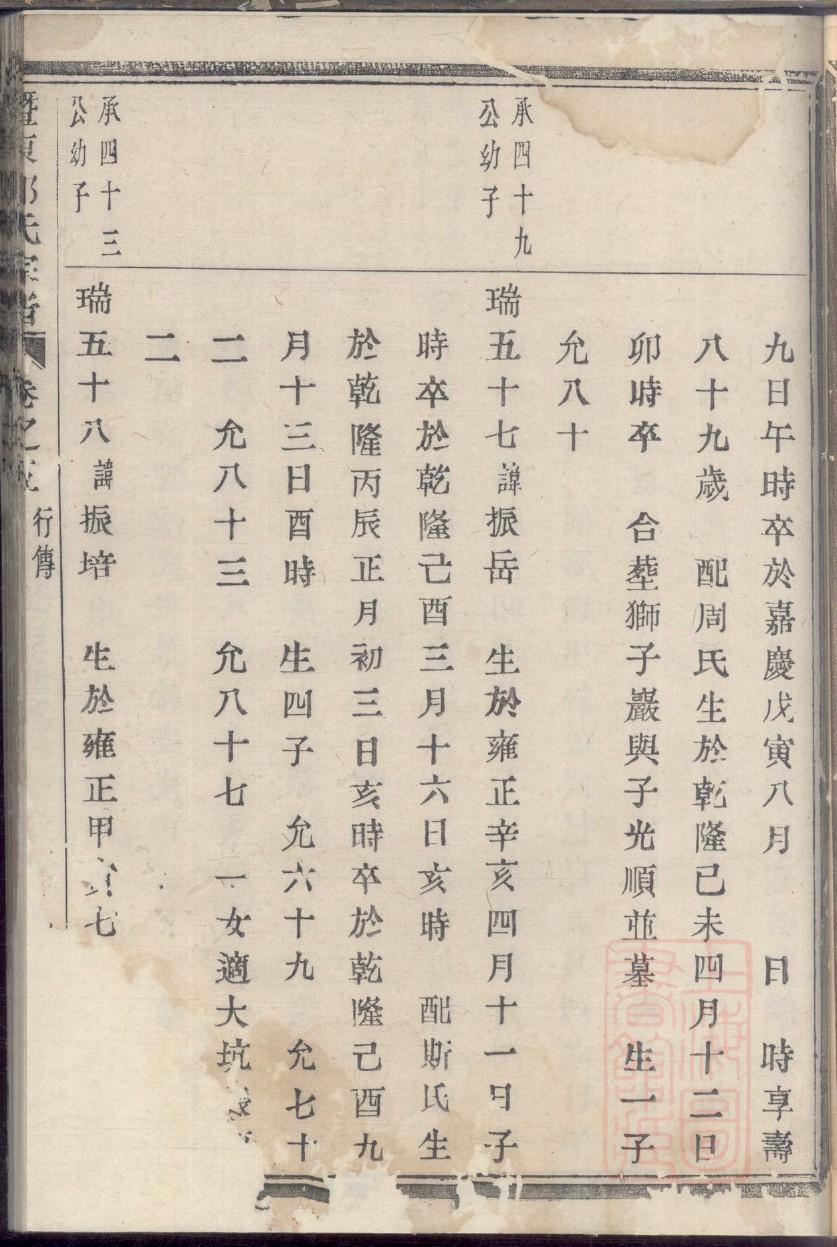 九日午時卒於嘉慶戊寅八月 日 時享壽
八十九歲 配周氏生於乾隆己未四月十二日
卯時卒 合塟獅子巖與子光順並墓 生一子
允八十
承四十九
公幼子
瑞五十七諱振岳 生於雍正辛亥四月十一日子
時卒於乾隆己酉三月十六日亥時 配斯氏生
於乾隆丙辰正月初三日亥時卒於乾隆己酉九
月十三日酉時 生四子 允六十九 允七十
二 允八十三 允八十七 一女適大坑
二
承四十三
公幼子
瑞五十八諱振培 生於雍正甲寅七
暨東 氏宗 卷之 行傳